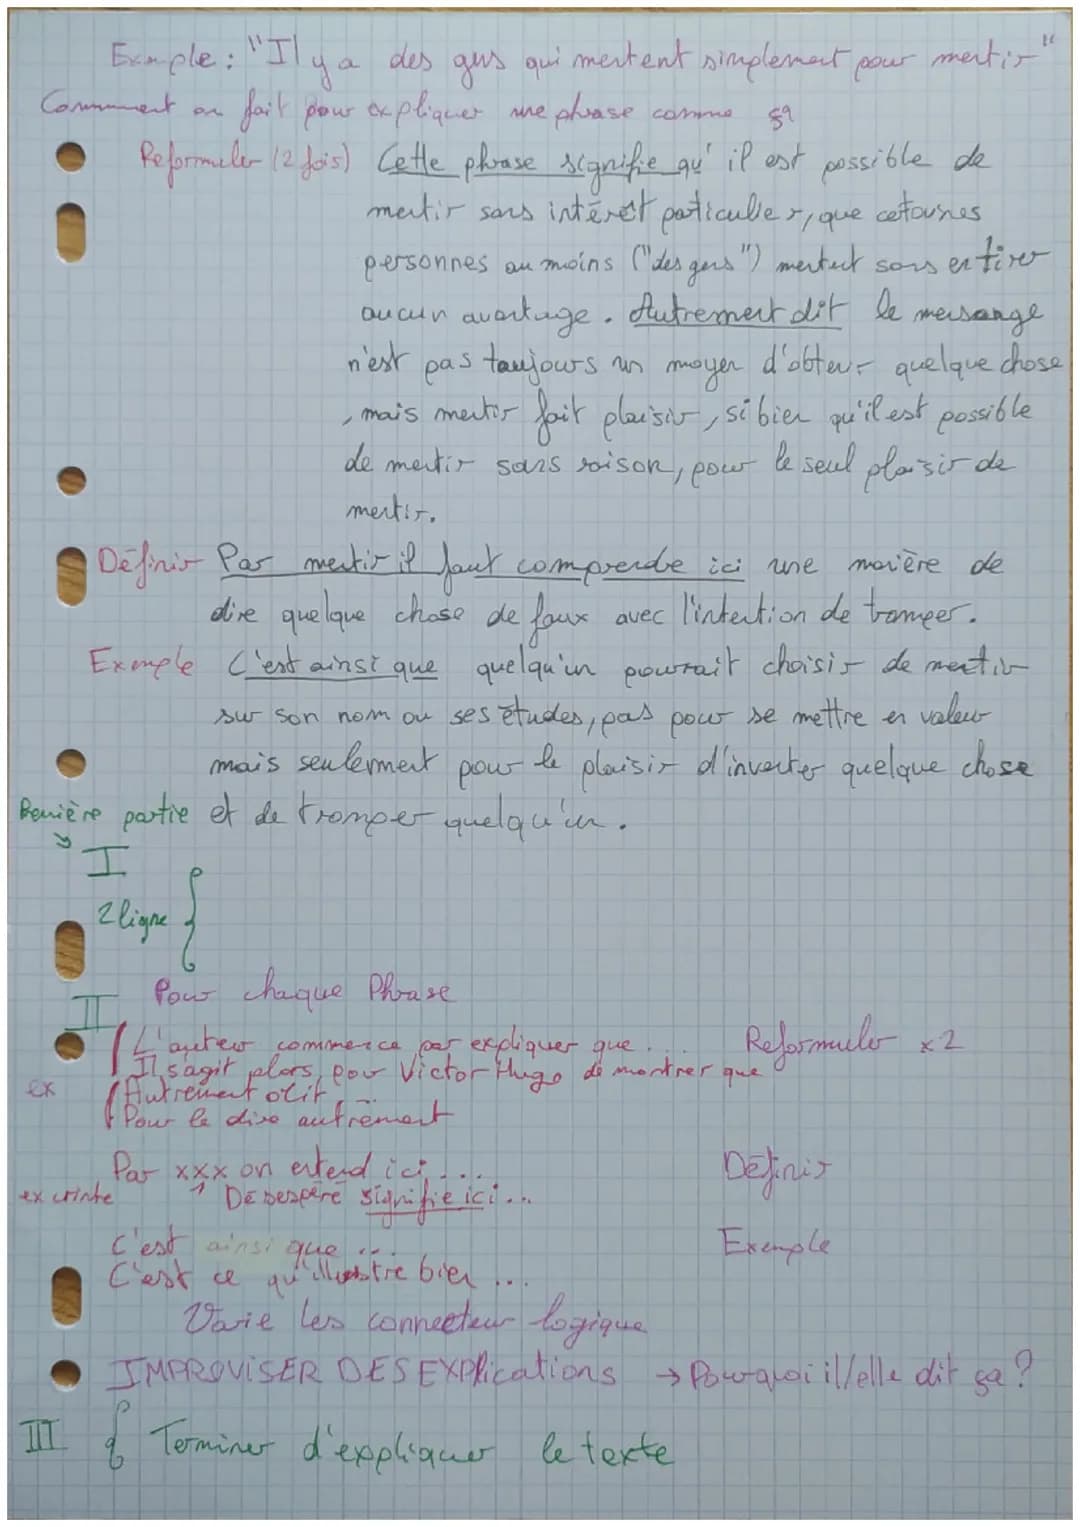 Exemple : "Il y a des gens qui mentent simplement pour mentir"
Comment on fait pour expliquer une phrase comme ça
Reformuler (2 fois) Cette phrase signifie qu'il est possible de
mentir sans intérêt particulier, que certaines
personnes au moins ("des gens") mentent sans en tirer
aucun avantage. Autrement dit le mensonge
n'est pas toujours un moyen d'obtenir quelque chose
, mais mentir fait plaisir, si bien qu'il est possible
de mentir sans raison, pour le seul plaisir de
mentir.
Définir Par mentir il faut comprendre ici une manière de
dire quelque chose de faux avec l'intention de tromper.
Exemple C'est ainsi que quelqu'un pourrait choisir de mentir
sur son nom ou ses études, pas pour se mettre en valeur
mais seulement pour le plaisir d'inventer quelque chose
Première partie et de tromper quelqu'un.
I
2 ligne {
II Pour chaque Phrase
L'auteur commence par expliquer que ... Reformuler x2
Il s'agit alors, pour Victor Hugo de montrer que
ex Autrement dit, ...
Pour le dire autrement
Par xxx on entend ici .... Définir
ex crinte ↑ Désespéré signifie ici ...
C'est ainsi que ... Exemple
C'est ce qu'illustre bien ...
Varie les connecteur logique
IMPROVISER DES EXPlications → Pourquoi il/elle dit ça ?
III { Terminer d'expliquer le texte